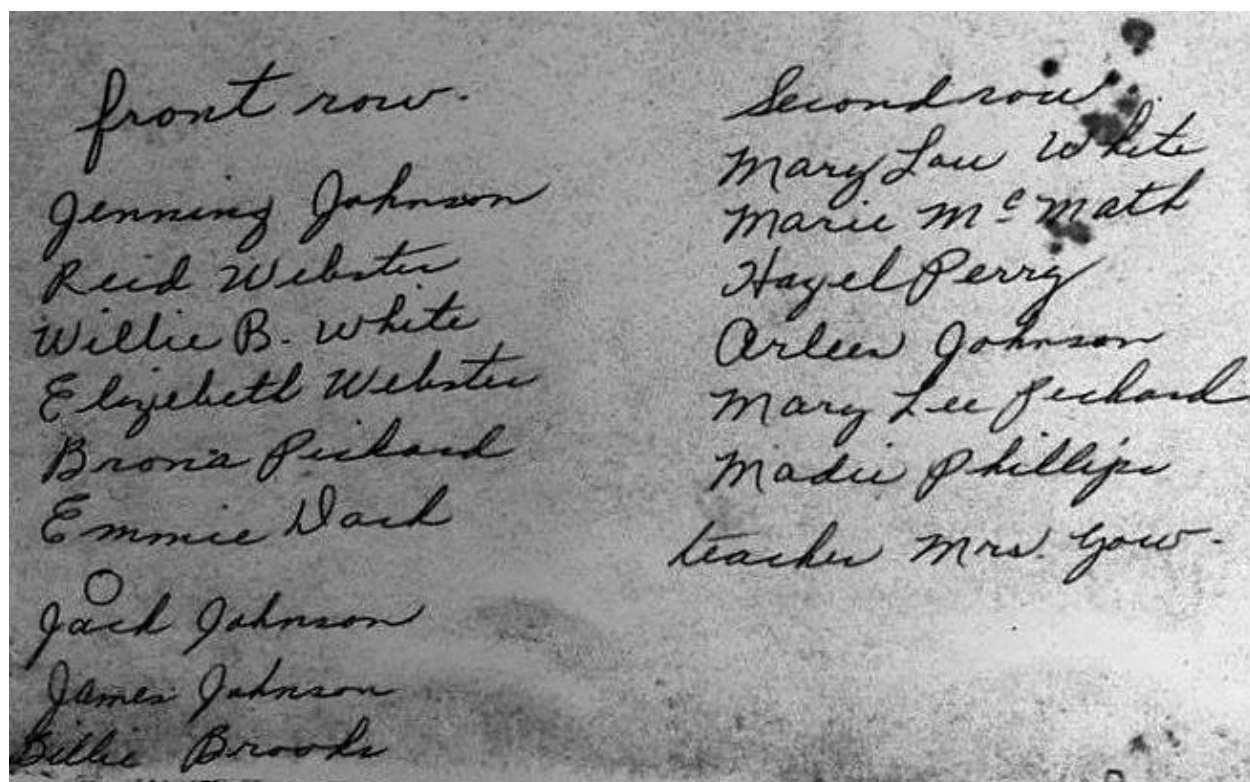 front row.
Jenning Johnson
Reid Webster
Willie B. White
Elizebeth Webster
Brona Pickard
Emmie Dack
Jack Johnson
James Johnson
Billie Brooks
Second row.
Mary Lou White
Marie Mc Math
Hazel Perry
Arleen Johnson
Mary Lee Peckard
Madie Phillips
teacher Mrs. Gow.